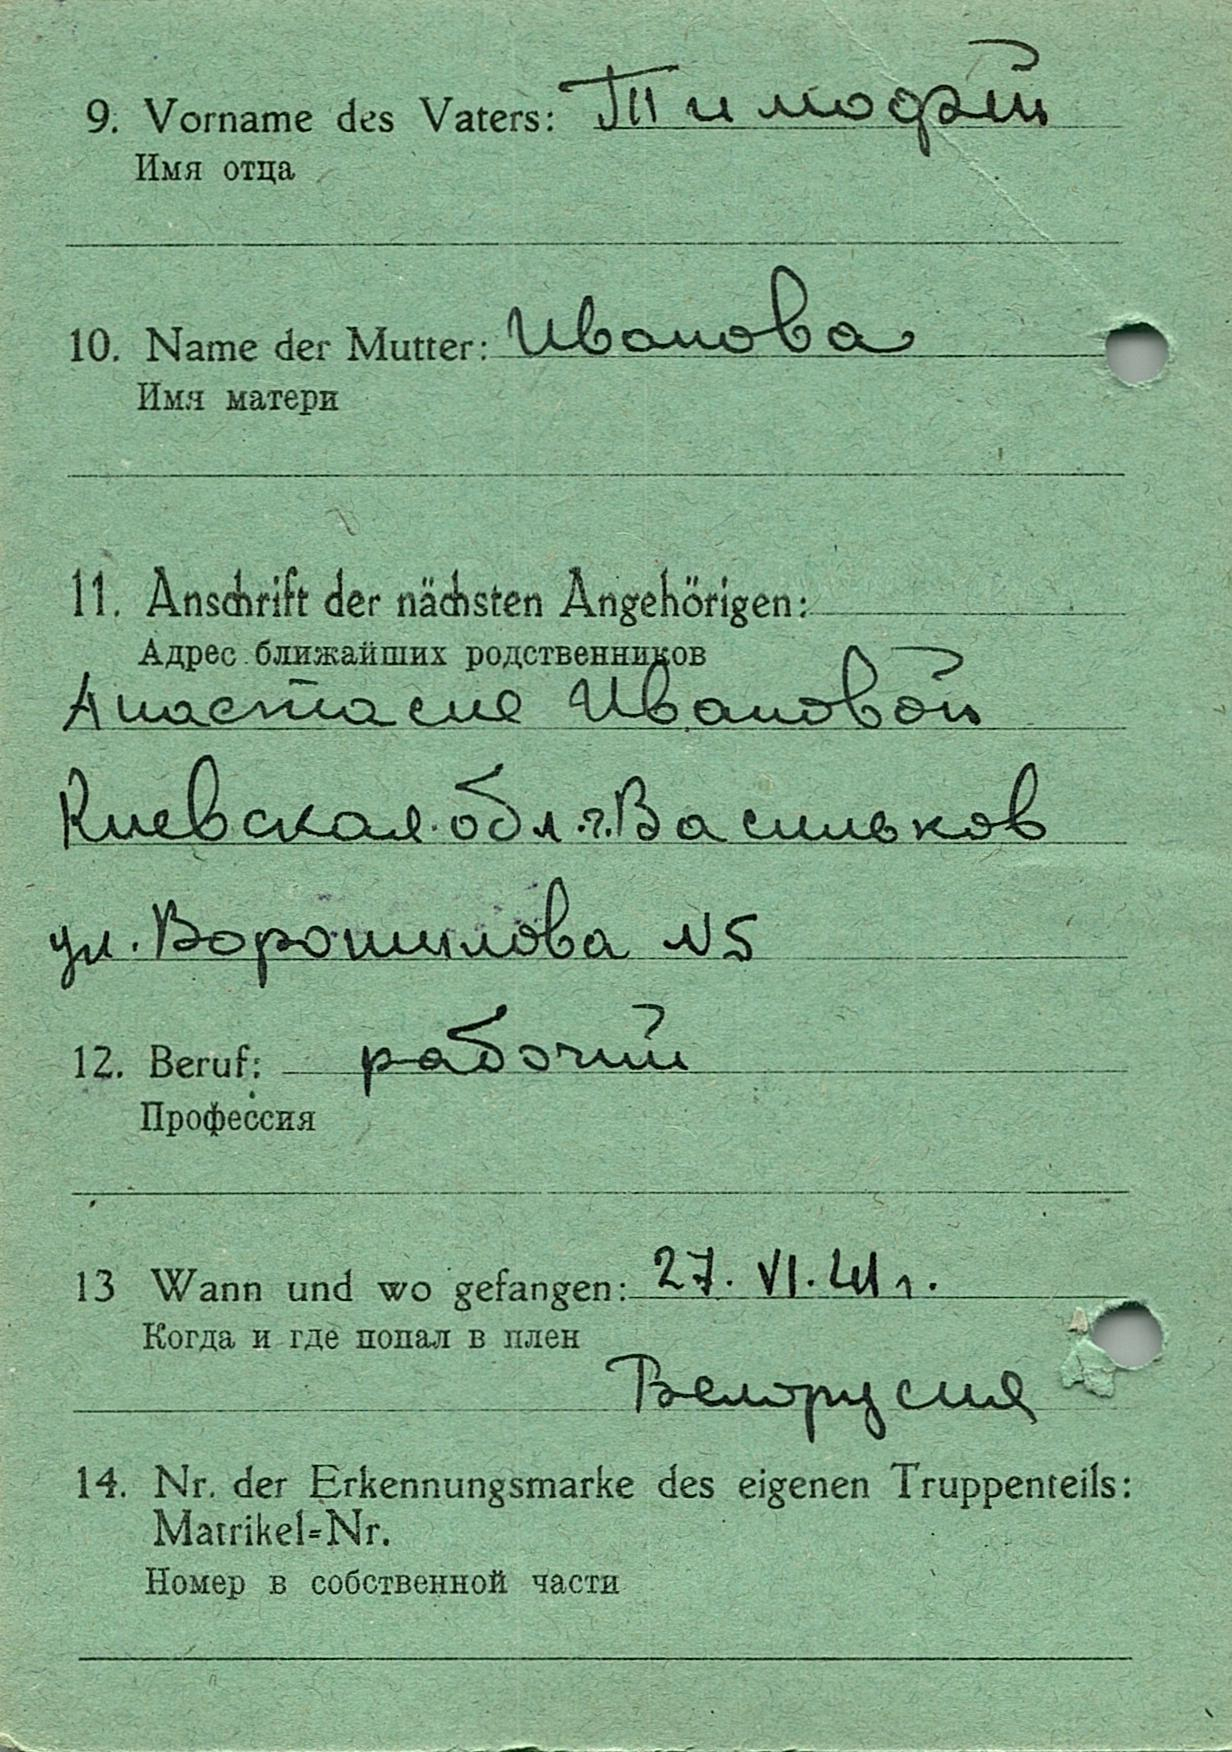 9. Vorname des Vaters: Тимофей
Имя отца
10. Name der Mutter: Иванова
Имя матери
11. Anschrift der nächsten Angehörigen:
Адрес ближайших родственников
Анастасие Ивановой
Киевская обл. г. Васильков
ул. Ворошилова N5
12. Beruf: рабочий
Профессия
13 Wann und wo gefangen: 27. VI. 41 г.
Когда и где попал в плен
Белорусия
14. Nr. der Erkennungsmarke des eigenen Truppenteils:
Matrikel=Nr.
Номер в собственной части